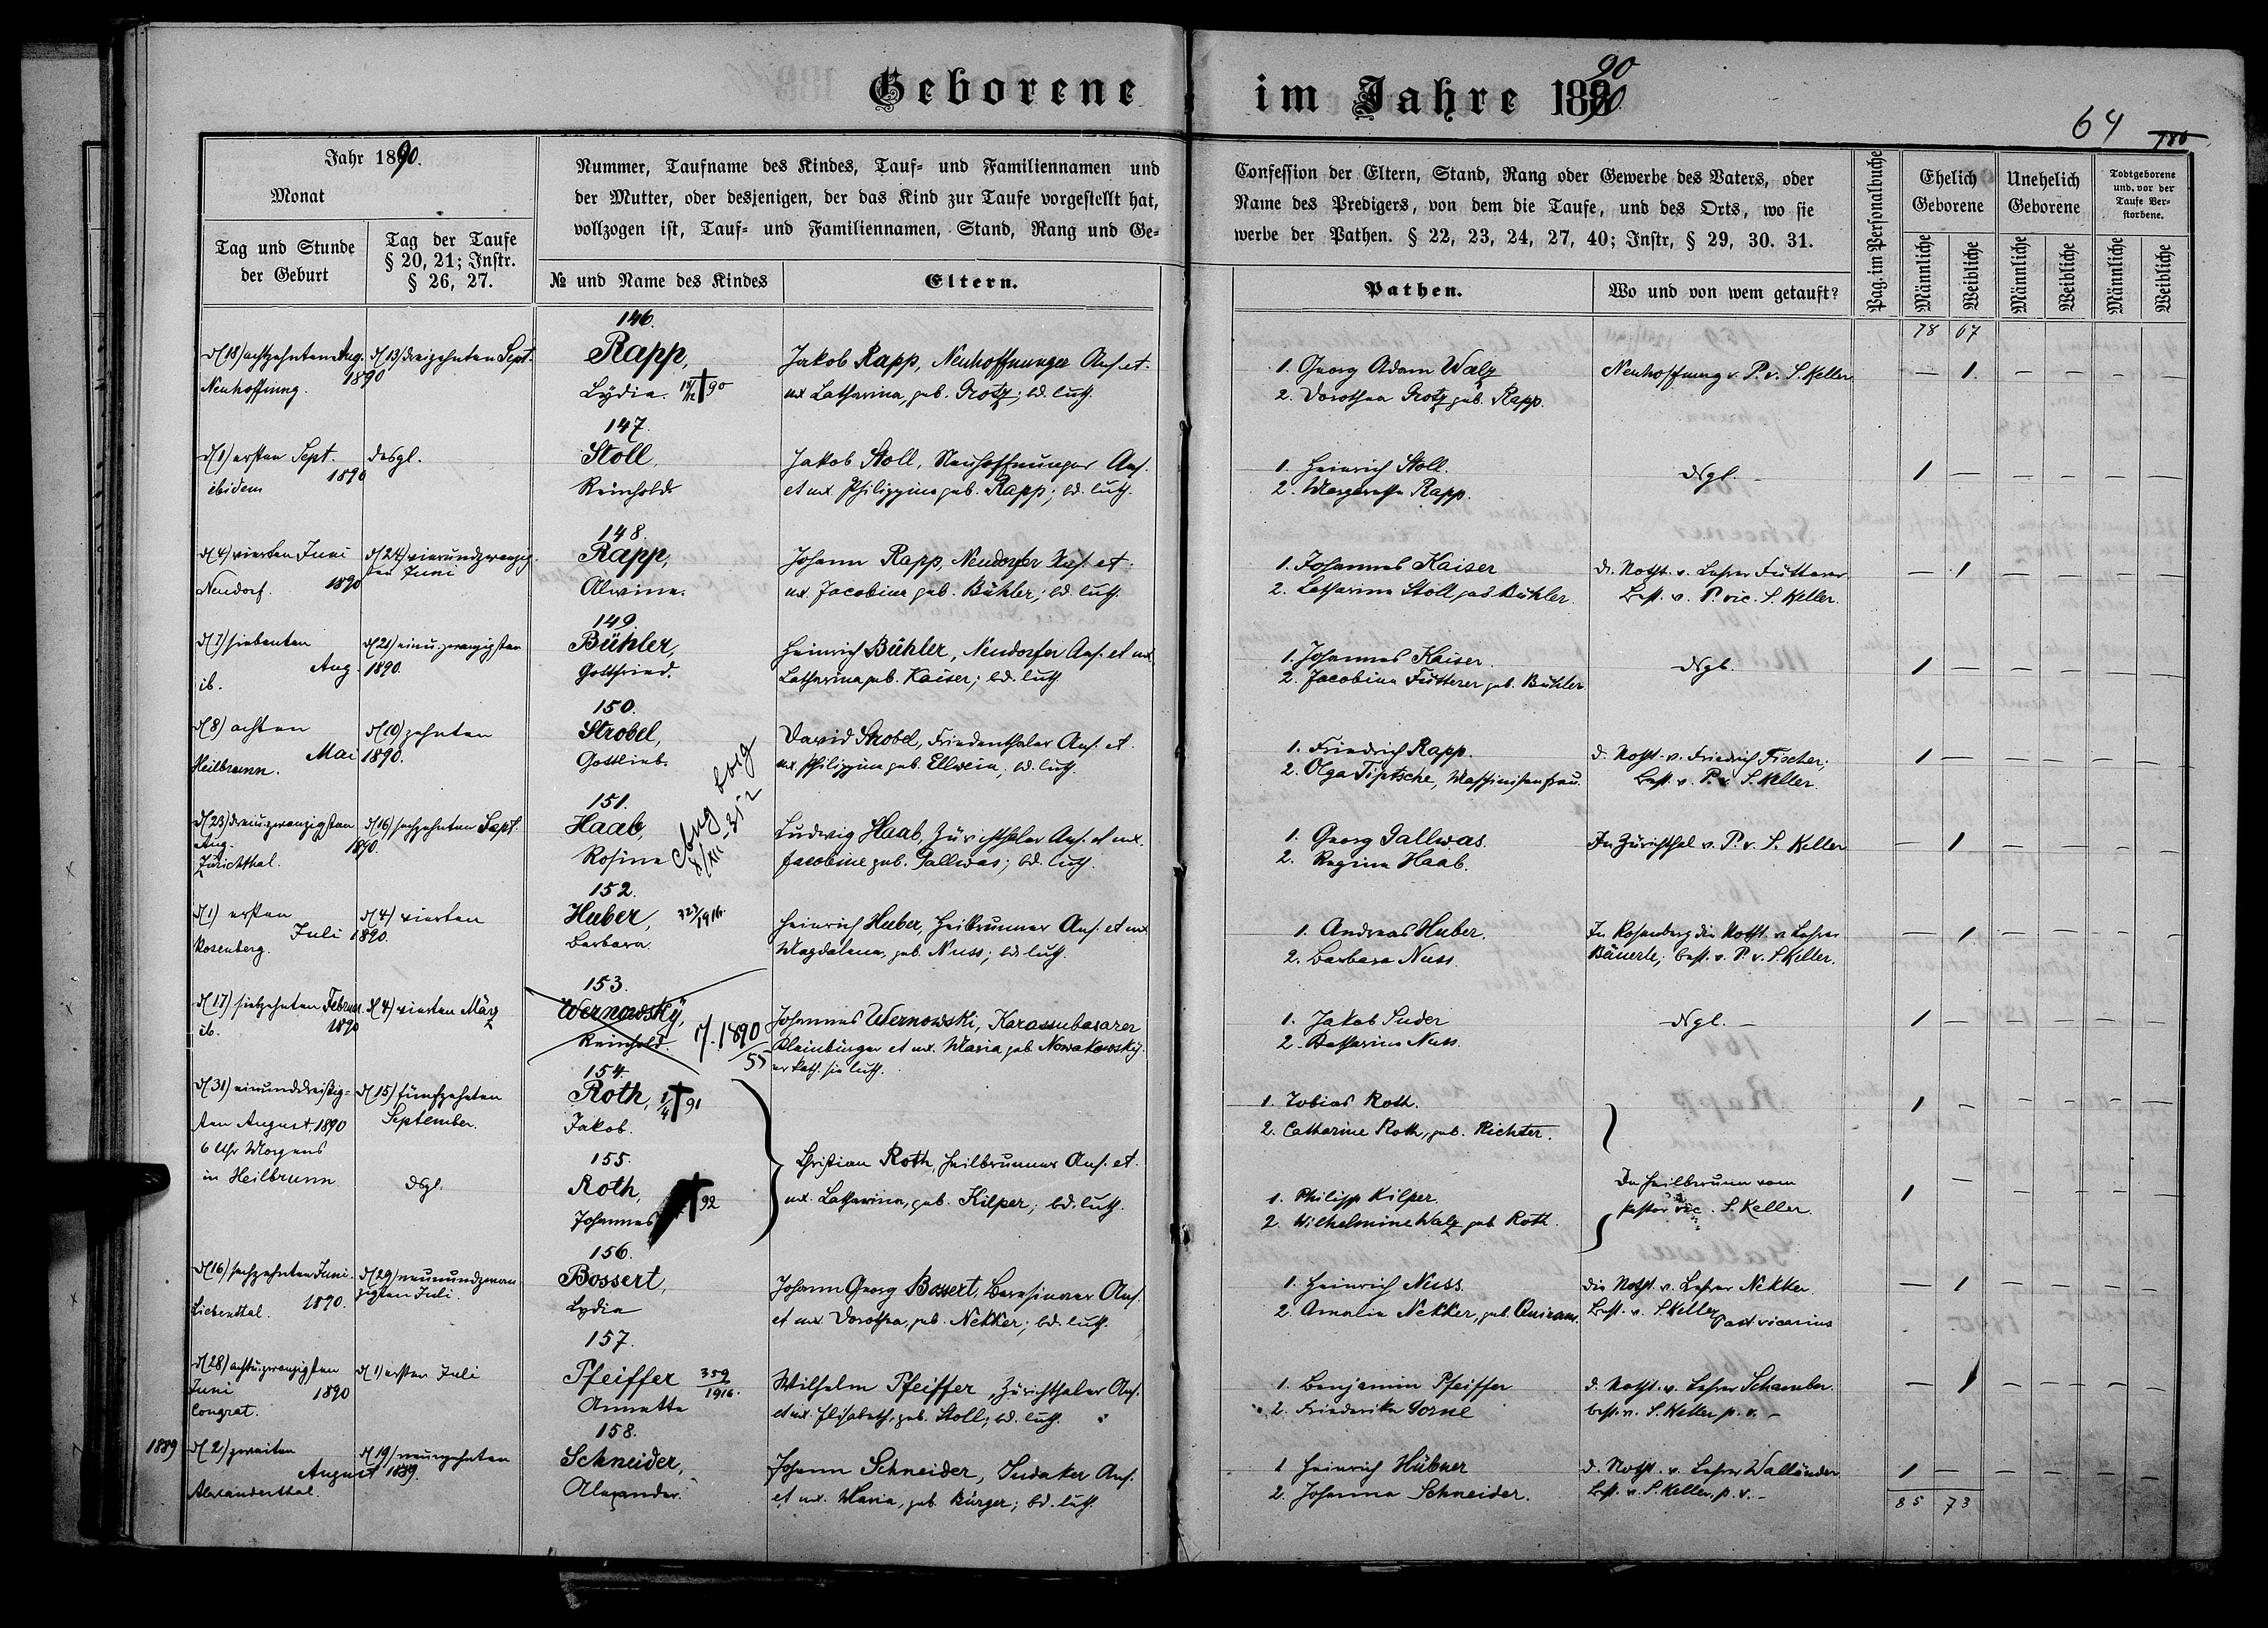 Geborene im Jahre 1890
90
64
Jahr 1890.
Monat
Tag und Stunde
der Geburt
Tag der Taufe
§ 20, 21; Instr.
§ 26, 27.
Nummer, Taufname des Kindes, Tauf- und Familiennamen und
der Mutter, oder desjenigen, der das Kind zur Taufe vorgestellt hat,
vollzogen ist, Tauf- und Familiennamen, Stand, Rang und Ge-
№ und Name des Kindes
Eltern.
Confession der Eltern, Stand, Rang oder Gewerbe des Vaters, oder
Name des Predigers, von dem die Taufe, und des Orts, wo sie
werbe der Pathen. § 22, 23, 24, 27, 40; Instr, § 29, 30. 31.
Pathen.
Wo und von wem getauft?
Pag. im Personalbuche
Ehelich
Geborene
Unehelich
Geborene
Todtgeborene
und. vor der
Taufe Ver-
storbene.
Männliche
Weibliche
Männliche
Weibliche
Männliche
Weibliche
78 67
146.
d (18) achtzehnten Aug. d (13) dreizehnten Sept.
1890
Neuhoffnung.
Rapp,
Lydia. † 90
Jakob Rapp, Neuhoffnunger Ans. et
ux Catharina, geb. Grotz; bd. luth.
1. Georg Adam Walz
2. Dorothea Grotz geb. Rapp.
Neuhoffnung v. P. v. S. Keller
— 1. — — — —
147.
d (1) ersten Sept. desgl.
1890
ibidem
Stoll,
Reinhold
Jakob Stoll, Neuhoffnunger Ans.
et ux. Philippine geb. Rapp; bd. luth.
1. Heinrich Stoll.
2. Margaretha Rapp.
dsgl. —
1 — — — — —
148.
d (4) vierten Juni d (24) vierundzwanzig-
sten Juni
1890
Neudorf.
Rapp,
Alwine.
Johann Rapp, Neudorfer Ans. et
ux. Jacobine geb. Bühler; bd. luth.
1. Johannes Kaiser
2. Catharina Stoll geb Bühler.
d. Notht. v. Lehrer Fütterer
Best. v. P. vic. S. Keller.
— 1 — — — —
149.
d (7) siebenten d (21) einu. zwanzigsten
Aug. 1890.
ib.
Bühler,
Gottfried.
Heinrich Bühler, Neudorfer Ans. et ux.
Catharina geb. Kaiser; bd. luth.
1. Johannes Kaiser.
2. Jacobine Fütterer geb. Bühler
dsgl. —
1 — — — — —
150.
d (8) achten d (10) zehnten
Mai 1890.
Heilbrunn.
Strobel,
Gottlieb.
David Strobel, Friedenthaler Ans. et
ux. Philippine geb. Ellwein; bd. luth.
1. Friedrich Rapp.
2. Olga Tiptsche, Maschinistenfrau.
d. Notht. v. Friedrich Fischer;
Best. v. P. v. S. Keller.
1 — — — — —
151.
d (23) dreiu. zwanzigsten d (16) sechzehnten Sept.
Aug. 1890.
Zürichthal.
Haab,
Rosine
Ludwig Haab, Zürichthaler Ans. et ux.
Jacobine geb. Gallwas; bd. luth.
1. Georg Gallwas.
2. Regina Haab.
In Zürichthal v. P. v. S. Keller
— 1 — — — —
152.
d (1) ersten d (4) vierten
Juli 1890.
Rosenberg.
Huber,
Barbara.
Heinrich Huber, Heilbrunner Ans. et ux
Magdalena, geb. Nuss; bd. luth.
1. Andreas Huber.
2. Barbara Nuss.
In Rosenberg die Notht. v. Lehrer
Bäuerle; best. v. P. v. S. Keller.
— 1. — — — —
153.
d (17) siebzehnten Februar. d (4) vierten März
ib. 1890
Wernowsky,
Reinhold.
1890
55
Johannes Wernowski, Karassubasarer
Kleinbürger et ux. Maria geb Nowakowsky.
er kath. sie luth.
1. Jakob Suder
2. Katharina Nuss.
dsgl. —
1 — — — — —
154.
d (31) einunddreißig- d (15) fünfzehnten
sten August. 1890 September.
6 Uhr Morgens
in Heilbrunn
Roth, 1/4 † 91
Jakob.
1. Tobias Roth.
2. Catharine Roth, geb. Richter.
1 — — — — —
155.
dsgl.
Roth, † 92
Johannes
Christian Roth, Heilbrunner Ans. et
ux. Catharina, geb. Kilper; bd. luth.
1. Philipp Kilper.
2. Wilhelmine Walz geb Roth.
In Heilbrunn vom
Pastor vic. S. Keller.
1 — — — — —
156.
d (16) sechzehnten Juni. d (29) neunundzwan-
zigsten Juli.
1890.
Lichtenthal.
Bossert,
Lydia
Johann Georg Bossert, Ans.
et ux. Dorothea, geb. Nekker; bd. luth.
1. Heinrich Nuss.
2. Amalie Nekker, geb. Quiram.
die Notht. v. Lehrer Nekker
Best. v. S. Keller Past. vicarius
— 1 — — — —
157.
d (28) achtu. zwanzigsten d (1) ersten Juli
Juni 1890
Congrat.
Pfeiffer 359
1916.
Annette
Wilhelm Pfeiffer, Zürichthaler Ans.
et ux. Elisabeth, geb. Stoll; bd. luth.
1. Benjamin Pfeiffer
2. Friederike Sorne
d. Notht. v. Lehrer Schamber.
best. v. S. Keller p. v. —
— 1 — — — —
158.
1889 d (2) zweiten d (19) neunzehnten
August 1889.
Alexanderthal.
Schneider,
Alexander.
Johann Schneider, Sudaker Ans.
et ux. Maria, geb. Bürger; bd. luth.
1 Heinrich Hübner
2. Johanna Schneider.
d. Notht. v. Lehrer Walländer
Best. v. S. Keller, p. v. —
1 — — — — —
85 73